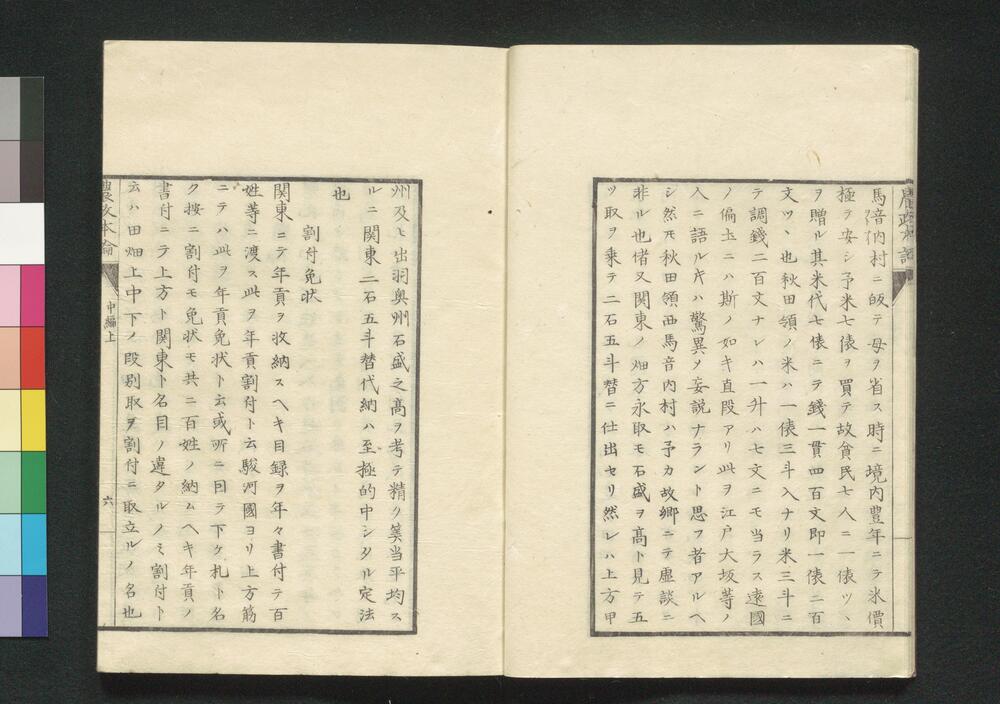 農政本論
馬音内村ニ皈テ母ヲ省ス時ニ境内豊年ニテ米價
極テ安シ予米七俵ヲ買テ故貧民七人ニ一俵ツヽ
ヲ贈ル其米代七俵ニテ錢一貫四百文即一俵二百
文ツヽ也秋田領ノ米ハ一俵三斗入ナリ米三斗ニ
テ調錢二百文ナレハ一升ハ七文ニモ当ラス遠國
ノ偏土ニハ斯ノ如キ直段アリ此ヲ江戸大坂等ノ
人ニ語ル片ハ驚異メ妄説ナラント思フ者アルヘ
シ然モ秋田領西馬音内村ハ予カ故郷ニテ虚談ニ
非ル也偖又関東ノ畑方永取モ石盛ヲ高ト見テ五
ツ取ヲ乗テ二石五斗替ニ仕出セリ然レハ上方甲
州及ヒ出羽奥州石盛之高ヲ考テ精ク筭当平均ス
ルニ関東二石五斗替代納ハ至極的中シタル定法
也
割付免状
関東ニテ年貢ヲ收納スヘキ目録ヲ年々書付テ百
姓等ニ渡ス此ヲ年貢割付ト云駿河國ヨリ上方筋
ニテハ此ヲ年貢免状ト云或所ニ因ラ下ケ札ト名
ク按ニ割付モ免状モ共ニ百姓ノ納ムヘキ年貢ノ
書付ニテ上方ト関東ト名目ノ違タルノミ割付ト
云ハ田畑上中下ノ段別取ヲ割付ニ取立ルノ名也
農政本論
中編上
六